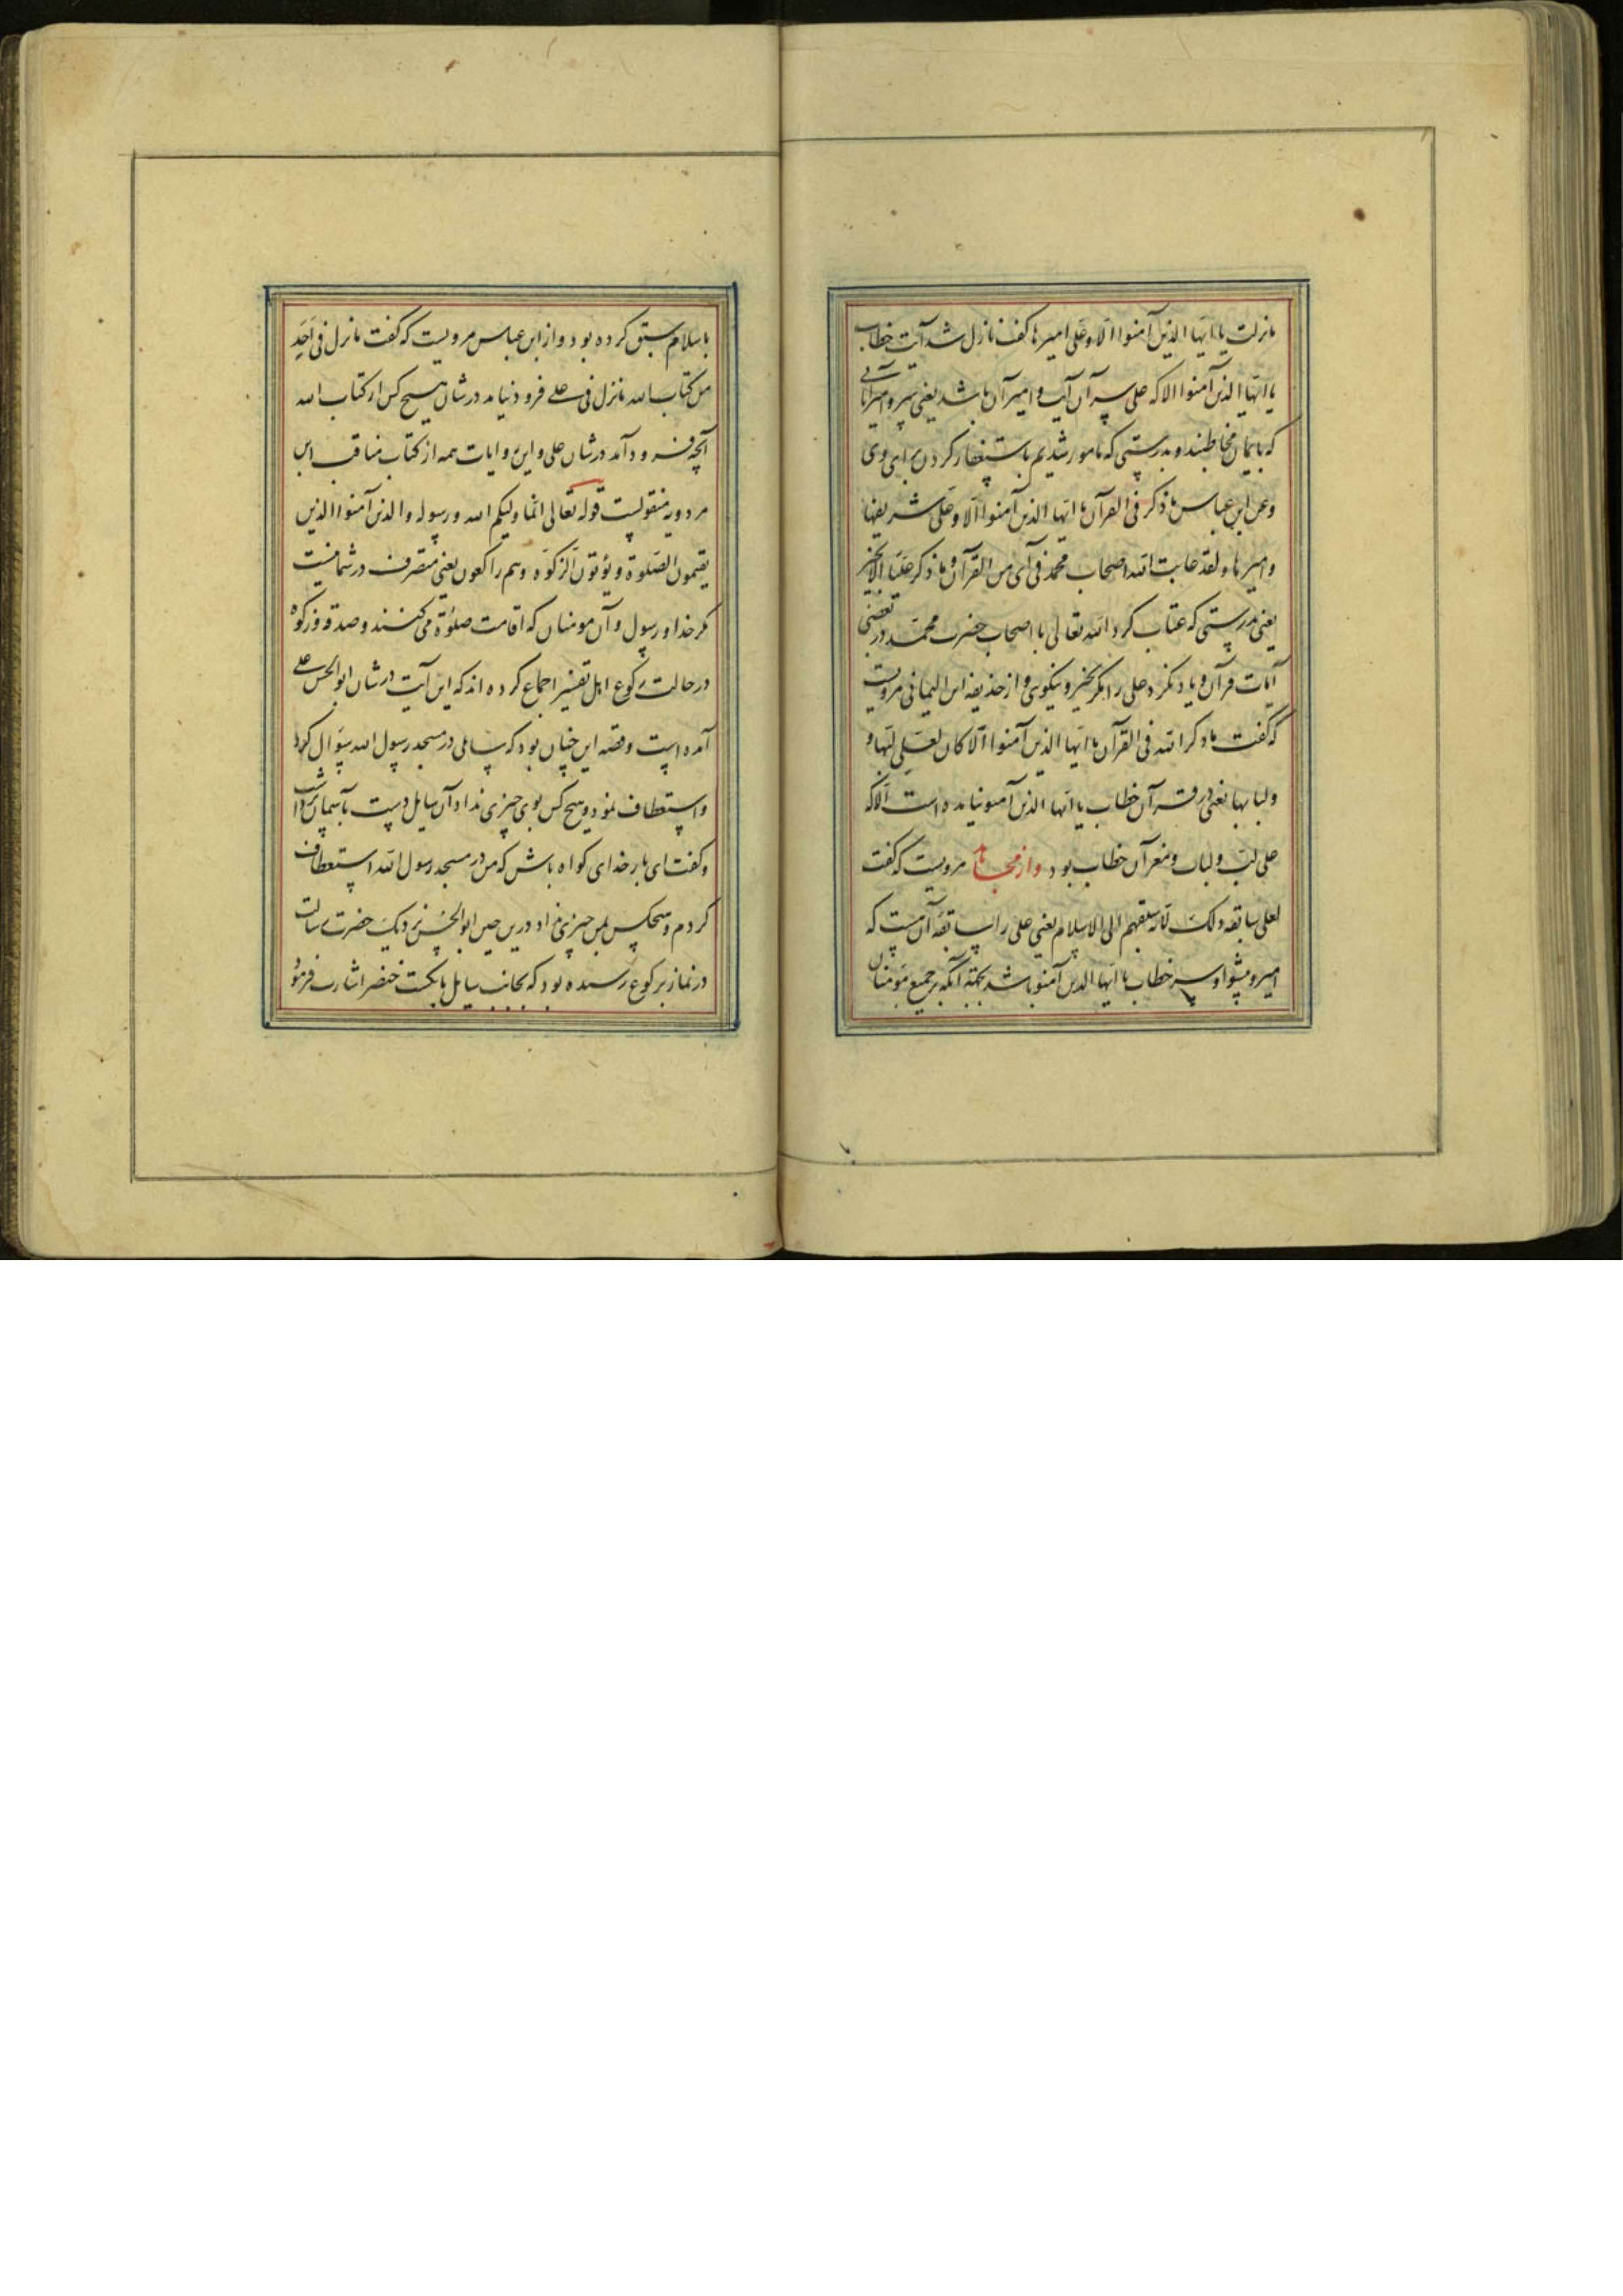 ما نزلت یا ایها الذین آمنوا الا و علی امیرها کفت نازل نشد آیت خطاب
یا ایها الذین آمنوا الا که علی سر آن آیت و امیر آن باشد یعنی سر و امیر آنانی
که بایمان مخاطبند و بدرستی که مامور شدیم باستغفار کردن برای وی
وعن ابن عباس ما ذکر فی القرآن یا ایها الذین آمنوا الا و علی شریفها
و امیرها و لقد عاتب الله اصحاب محمد فی آی من القرآن و ما ذکر علیا الا بخیر
یعنی بدرستی که عتاب کرد الله تعالی با اصحاب حضرت محمد در بعضی
آیات قرآن و یاد نکرد علی را مکر بخیر و نیکوی و از حذیفه ابن الیمانی مرویست
که کفت ما ذکر الله فی القرآن یا ایها الذین آمنوا الا کان لعلی لبها و
ولبابها یعنی در قرآن خطاب یا ایها الذین آمنو نیامده است الا که
علی لب و لباب و مغز آن خطاب بود و از مجاهد مرویست که کفت
لعلی سابقه ذلک لانه سبقهم الی الاسلام یعنی علی را سابقه آن هست که
امیر و پیشوا و سر خطاب یا ایها الذین آمنو باشد بجهة آنکه بر جمیع مومنان
باسلام سبق کرده بود و از ابن عباس مرویست که کفت ما نزل فی احد
من کتاب الله ما نزل فی علی فرود نیامد در شان هیچ کس از کتاب الله
آنچه فرود آمد در شان علی و این روایات همه از کتاب مناقب ابن
مردویه منقولست قوله تعالی انما ولیکم الله و رسوله والذین آمنوا الذین
یقیمون الصلوة و یؤتون الزکوة وهم راکعون یعنی متصرف در شما نیست
مکر خدا و رسول و آن مومنان که اقامت صلوة می کنند و صدقه و زکوة
در حالت رکوع اهل تفسیر اجماع کرده اند که این آیت در شان ابو الحسن علی
آمده است وقصه این چنان بود که سایلی در مسجد رسول الله سوال کرد
واستعطاف نمود و هیچ کس بوی چیزی نداد آن سایل دست بآسمان برداشت
و کفت ای بار خدای کواه باش که من در مسجد رسول الله استعطاف
کردم و هیچکس بمن چیزی نداد درین حین ابو الحسن نزدیک حضرت رسالت
در نماز برکوع رسیده بود که بجانب سایل بانکشت خنصر اشارت فرمود